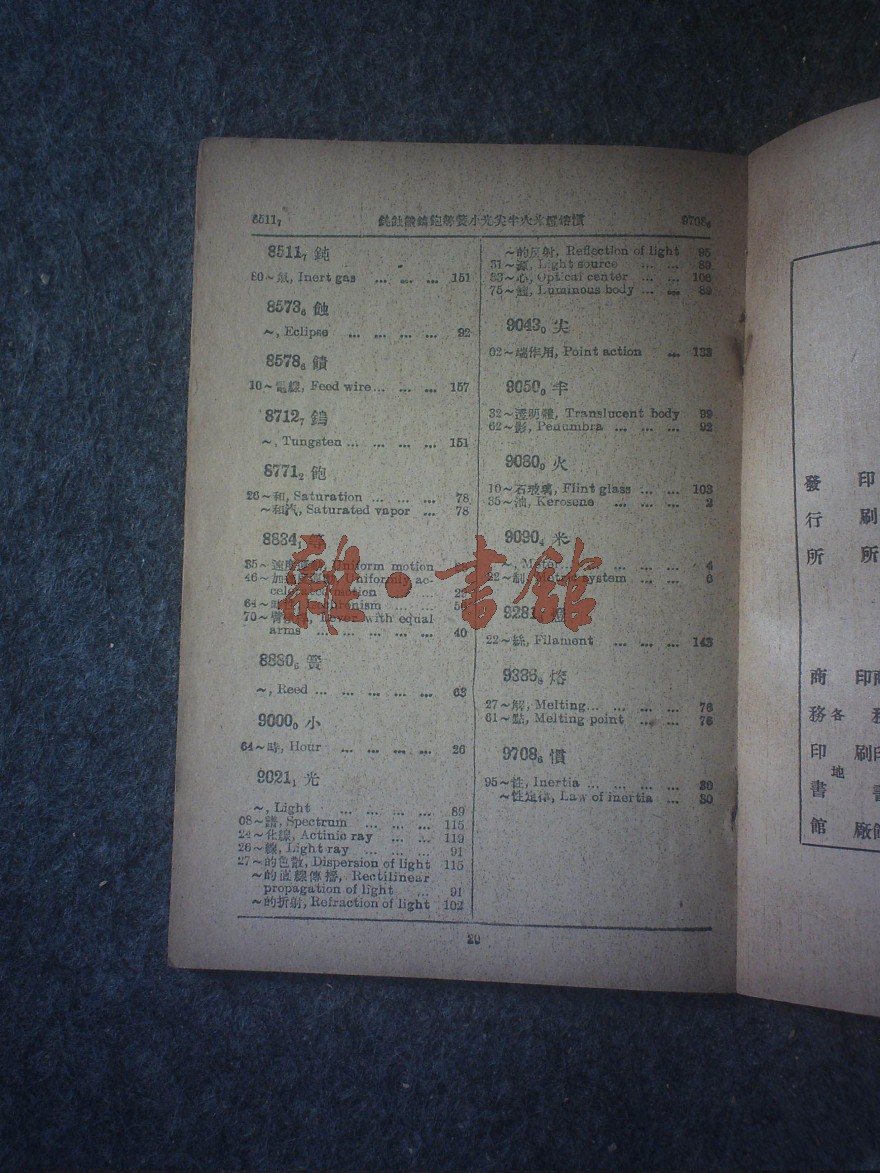 8511₇
鈍蝕饋鎢飽等簧小光尖半火米燈熔慣
9708₆
8511₇ 鈍
80～氣, Inert gas ... ... ... 151
8573₆ 蝕
～, Eclipse ... ... ... ... 92
8578₆ 饋
10～電線, Feed wire... ... ... 157
8712₇ 鎢
～, Tungsten ... ... ... ... 151
8771₂ 飽
26～和, Saturation ... ... ... 78
～和汽, Saturated vapor ... 78
8834₁ 等
35～速度運動, Uniform motion
46～加速度運動, Uniformly ac-
celerated motion ... ... 29
64～時性, Isochronism ... ... 56
70～臂槓桿, Lever with equal
arms ... ... ... ... ... 40
8880₆ 簧
～, Reed ... ... ... ... ... 63
9000₀ 小
64～時, Hour ... ... ... ... 26
9021₁ 光
～, Light ... ... ... ... 89
08～譜, Spectrum ... ... ... 115
24～化線, Actinic ray ... ... 119
26～線, Light ray ... ... ... 91
27～的色散, Dispersion of light 115
～的直線傳播, Rectilinear
propagation of light ... 91
～的折射, Refraction of light 102
～的反射, Reflection of light 95
31～源, Light source ... ... 89
33～心, Optical center ... ... 106
75～體, Luminous body ... ... 89
9043₀ 尖
02～端作用, Point action ... 133
9050₀ 半
32～透明體, Translucent body 99
62～影, Penumbra ... ... ... 92
9080₀ 火
10～石玻璃, Flint glass ... ... 103
35～油, Kerosene ... ... ... 2
9090₄ 米
～, Meter... ... ... ... ... 4
22～制, Metric system ... ... 6
9281 燈
22～絲, Filament ... ... ... 143
9386₈ 熔
27～解, Melting... ... ... ... 76
61～點, Melting point ... ... 76
9708₆ 慣
95～性, Inertia ... ... ... ... 30
～性定律, Law of inertia ... 30
20
雜·書館
印刷所
發行所
印刷廠
商務印書館
各地